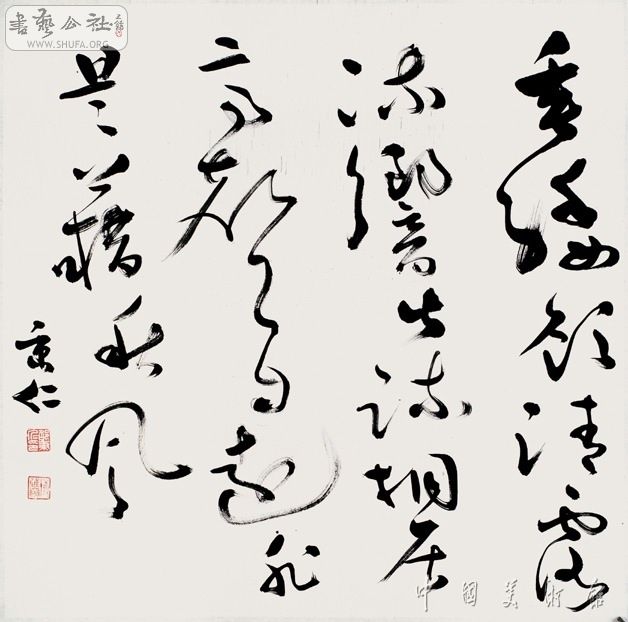 書藝公社
WWW.SHUFA.ORG
垂緌飲清露
流響出疏桐居
高聲自遠非
是藉秋風
中國美術館